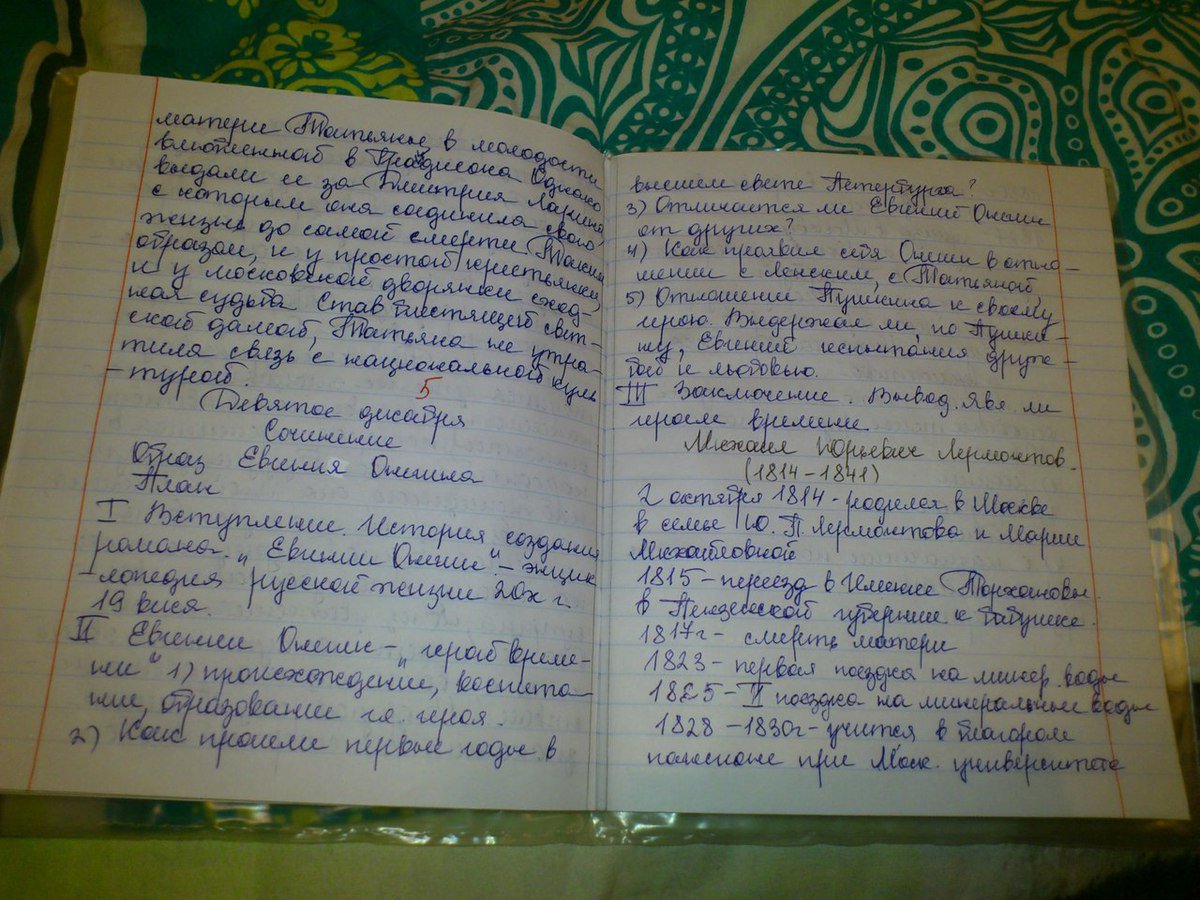 матери Татьяны, в молодости
влюбленной в Грандисона Однако
выдали ее за Дмитрия Ларина
с которым она соединила свою
жизнь до самой смерти Таким
образом, и у простой крестьянки,
и у московской дворянки сход-
ная судьба Став блестящей свет-
ской дамой, Татьяна не утра-
тила связь с национальной куль
-турой.
5
Девятое декабря
Сочинение
Образ Евгения Онегина
План
I Вступление. История создания
романа. „Евгений Онегин" - энцик
-лопедия русской жизни 20х г.
19 века.
II Евгений Онегин - „герой време-
ни" 1) происхождение, воспита-
ние, образование гл. героя.
2) Как прошли первые годы в
высшем свете Петербурга?
3) Отличается ли Евгений Онегин
от других?
4) Как проявил себя Онегин в отно-
шении с Ленским, с Татьяной
5) Отношение Пушкина к своему
герою. Выдержал ли, по Пушки-
ну, Евгений испытания друж-
бой и любовью.
III Заключение. Вывод. Явл. ли
героем времени.
Михаил Юрьевич Лермонтов.
(1814-1841)
2 октября 1814 - родился в Москве
в семье Ю. П. Лермонтова и Марии
Михайловной
1815 - переезд в Имение Тарханы.
в Пензенской губернии к бабушке.
1817г - смерть матери
1823 - первая поездка на минер. воды
1825 - II поездка на минеральные воды
1828 - 1830г - учится в благором
пансионе при Моск. университете